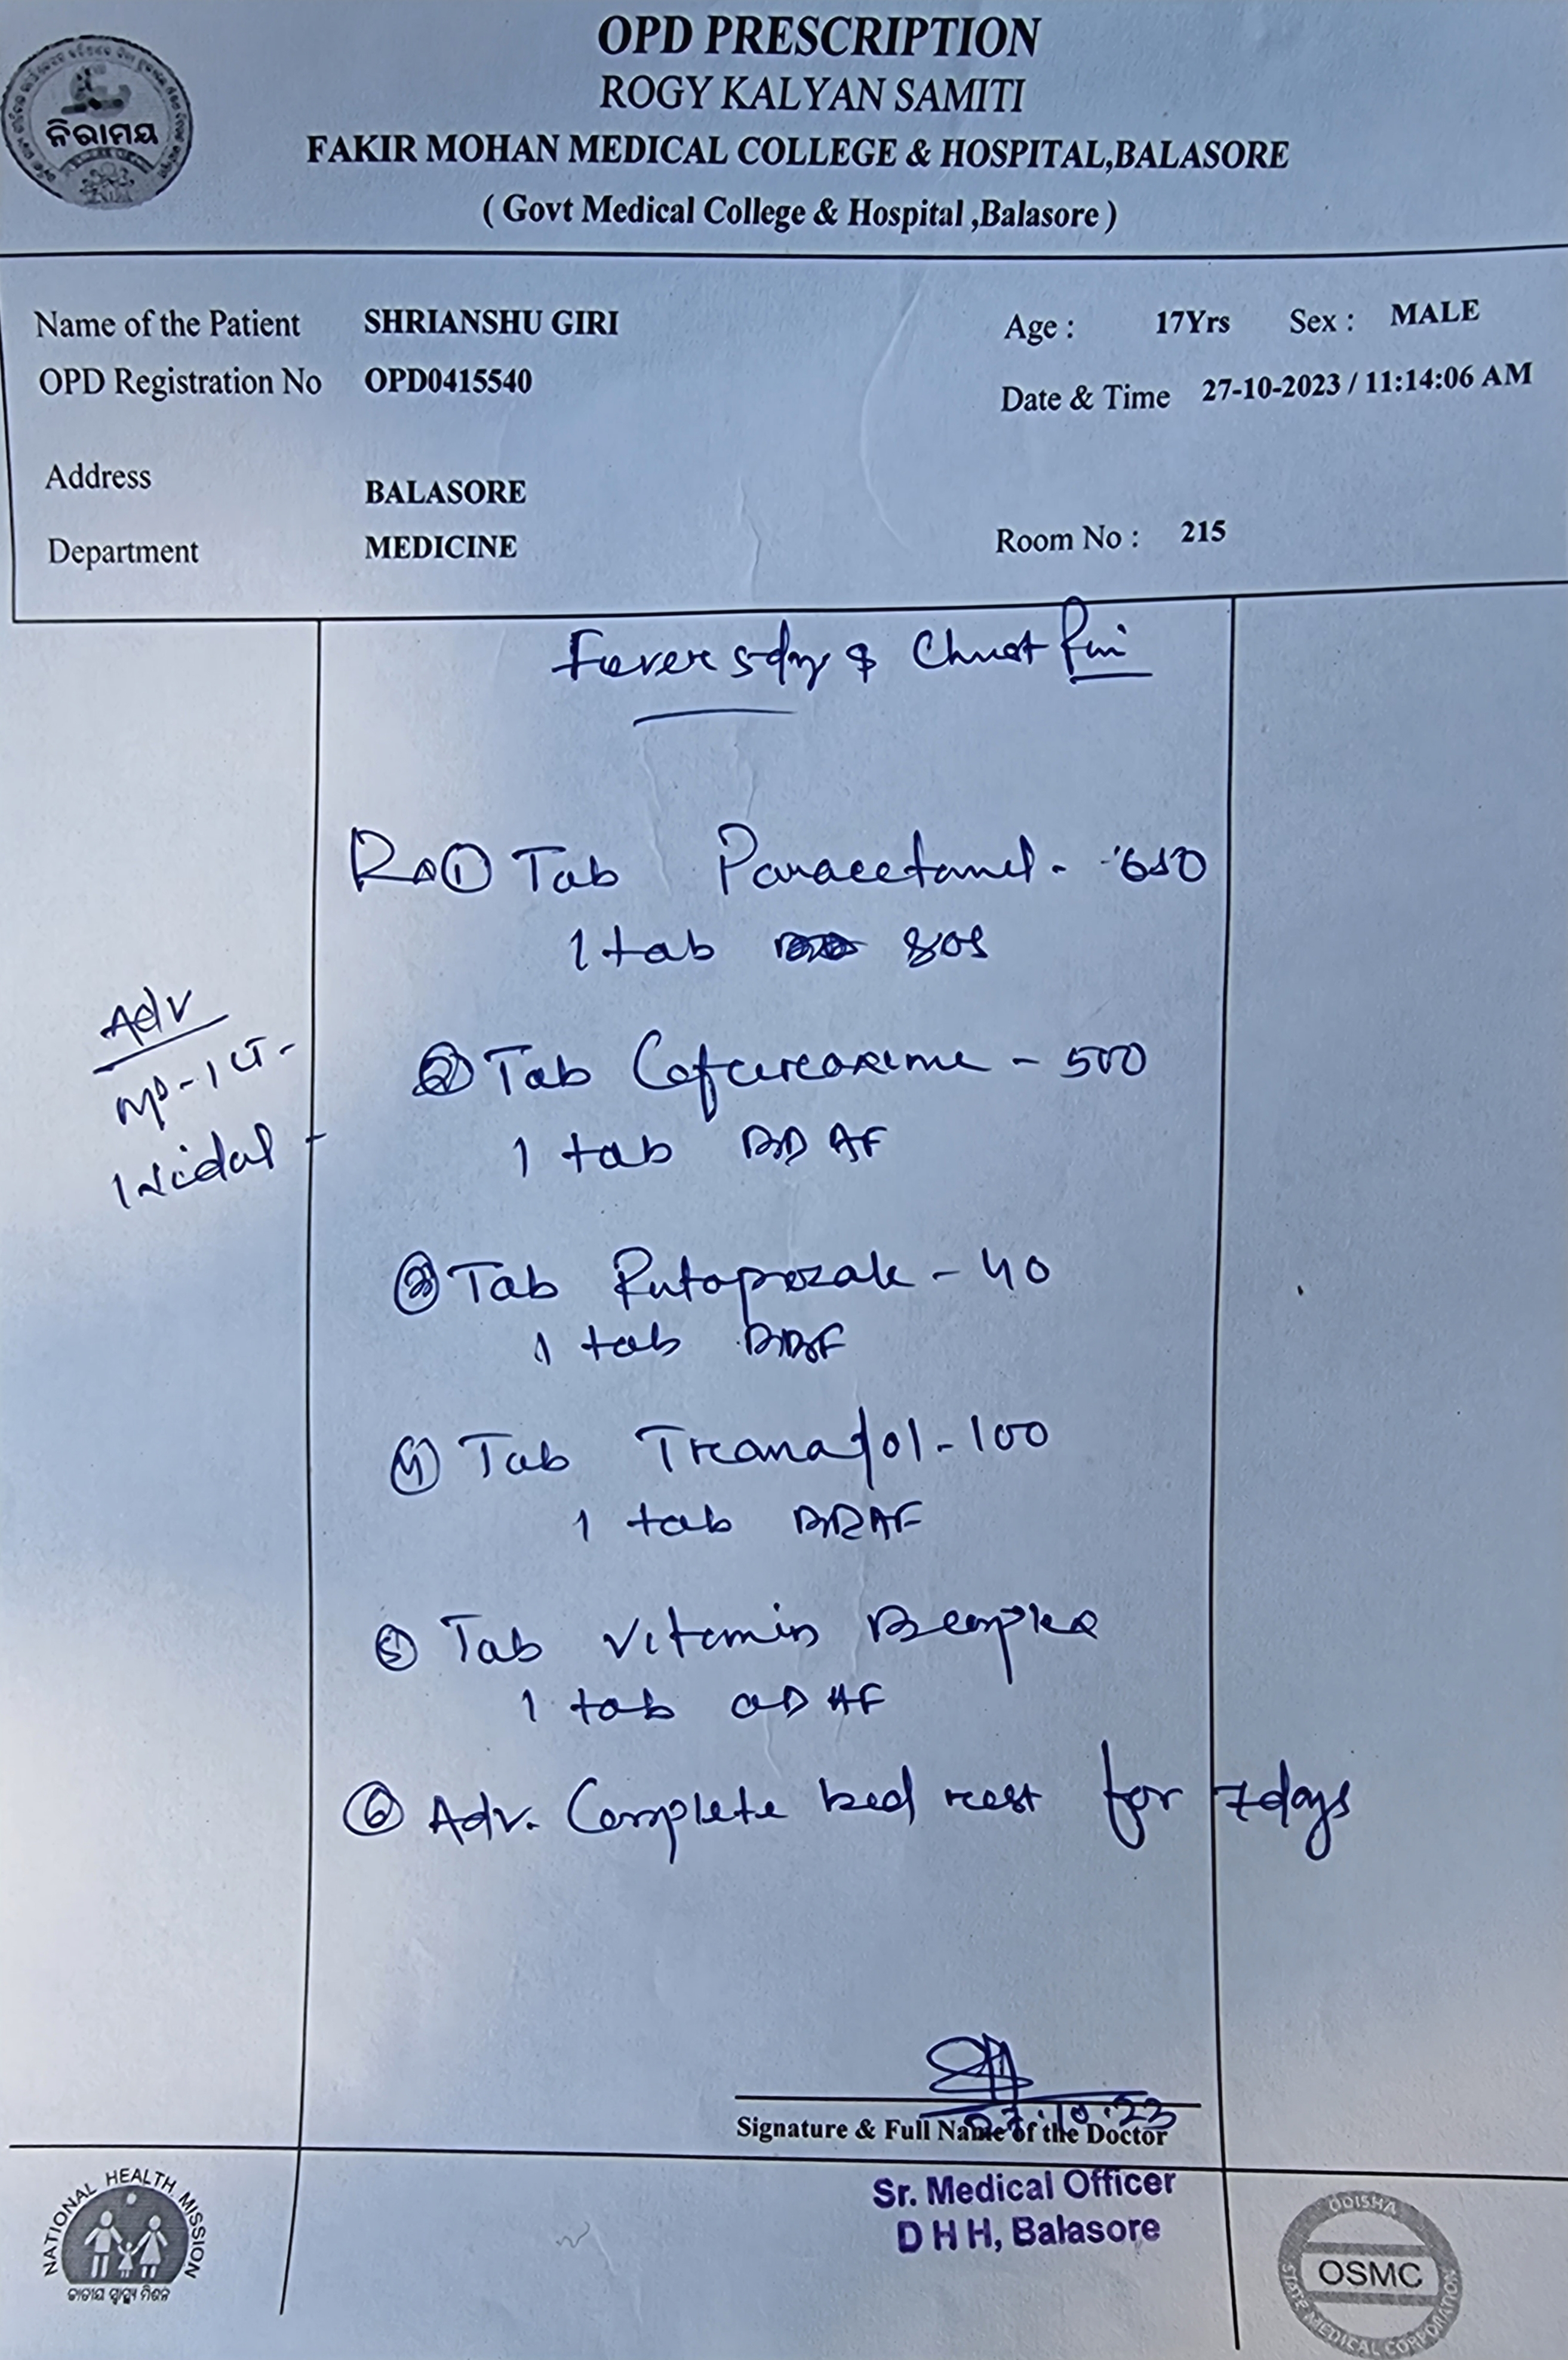 OPD PRESCRIPTION
ROGY KALYAN SAMITI
FAKIR MOHAN MEDICAL COLLEGE & HOSPITAL,BALASORE
( Govt Medical College & Hospital ,Balasore )
ନିରାମୟ
Name of the Patient SHRIANSHU GIRI Age : 17Yrs Sex : MALE
OPD Registration No OPD0415540 Date & Time 27-10-2023 / 11:14:06 AM
Address BALASORE
Department MEDICINE Room No : 215
Fever 5day & Chest Pain
Rx ① Tab Paracetamol - 650
1 tab SOS
Adv
MP-ICT-
Widal -
② Tab Cefuroxime - 500
1 tab BD AF
③ Tab Pantoprazole - 40
1 tab BDBF
④ Tab Tramadol - 100
1 tab BDAF
⑤ Tab Vitamin Bcomplex
1 tab OD AF
⑥ Adv. Complete bed rest for 7days
27.10.23
Signature & Full Name of the Doctor
Sr. Medical Officer
D H H, Balasore
NATIONAL HEALTH MISSION
ଜାତୀୟ ସ୍ୱାସ୍ଥ୍ୟ ମିଶନ
ODISHA
OSMC
STATE MEDICAL CORPORATION